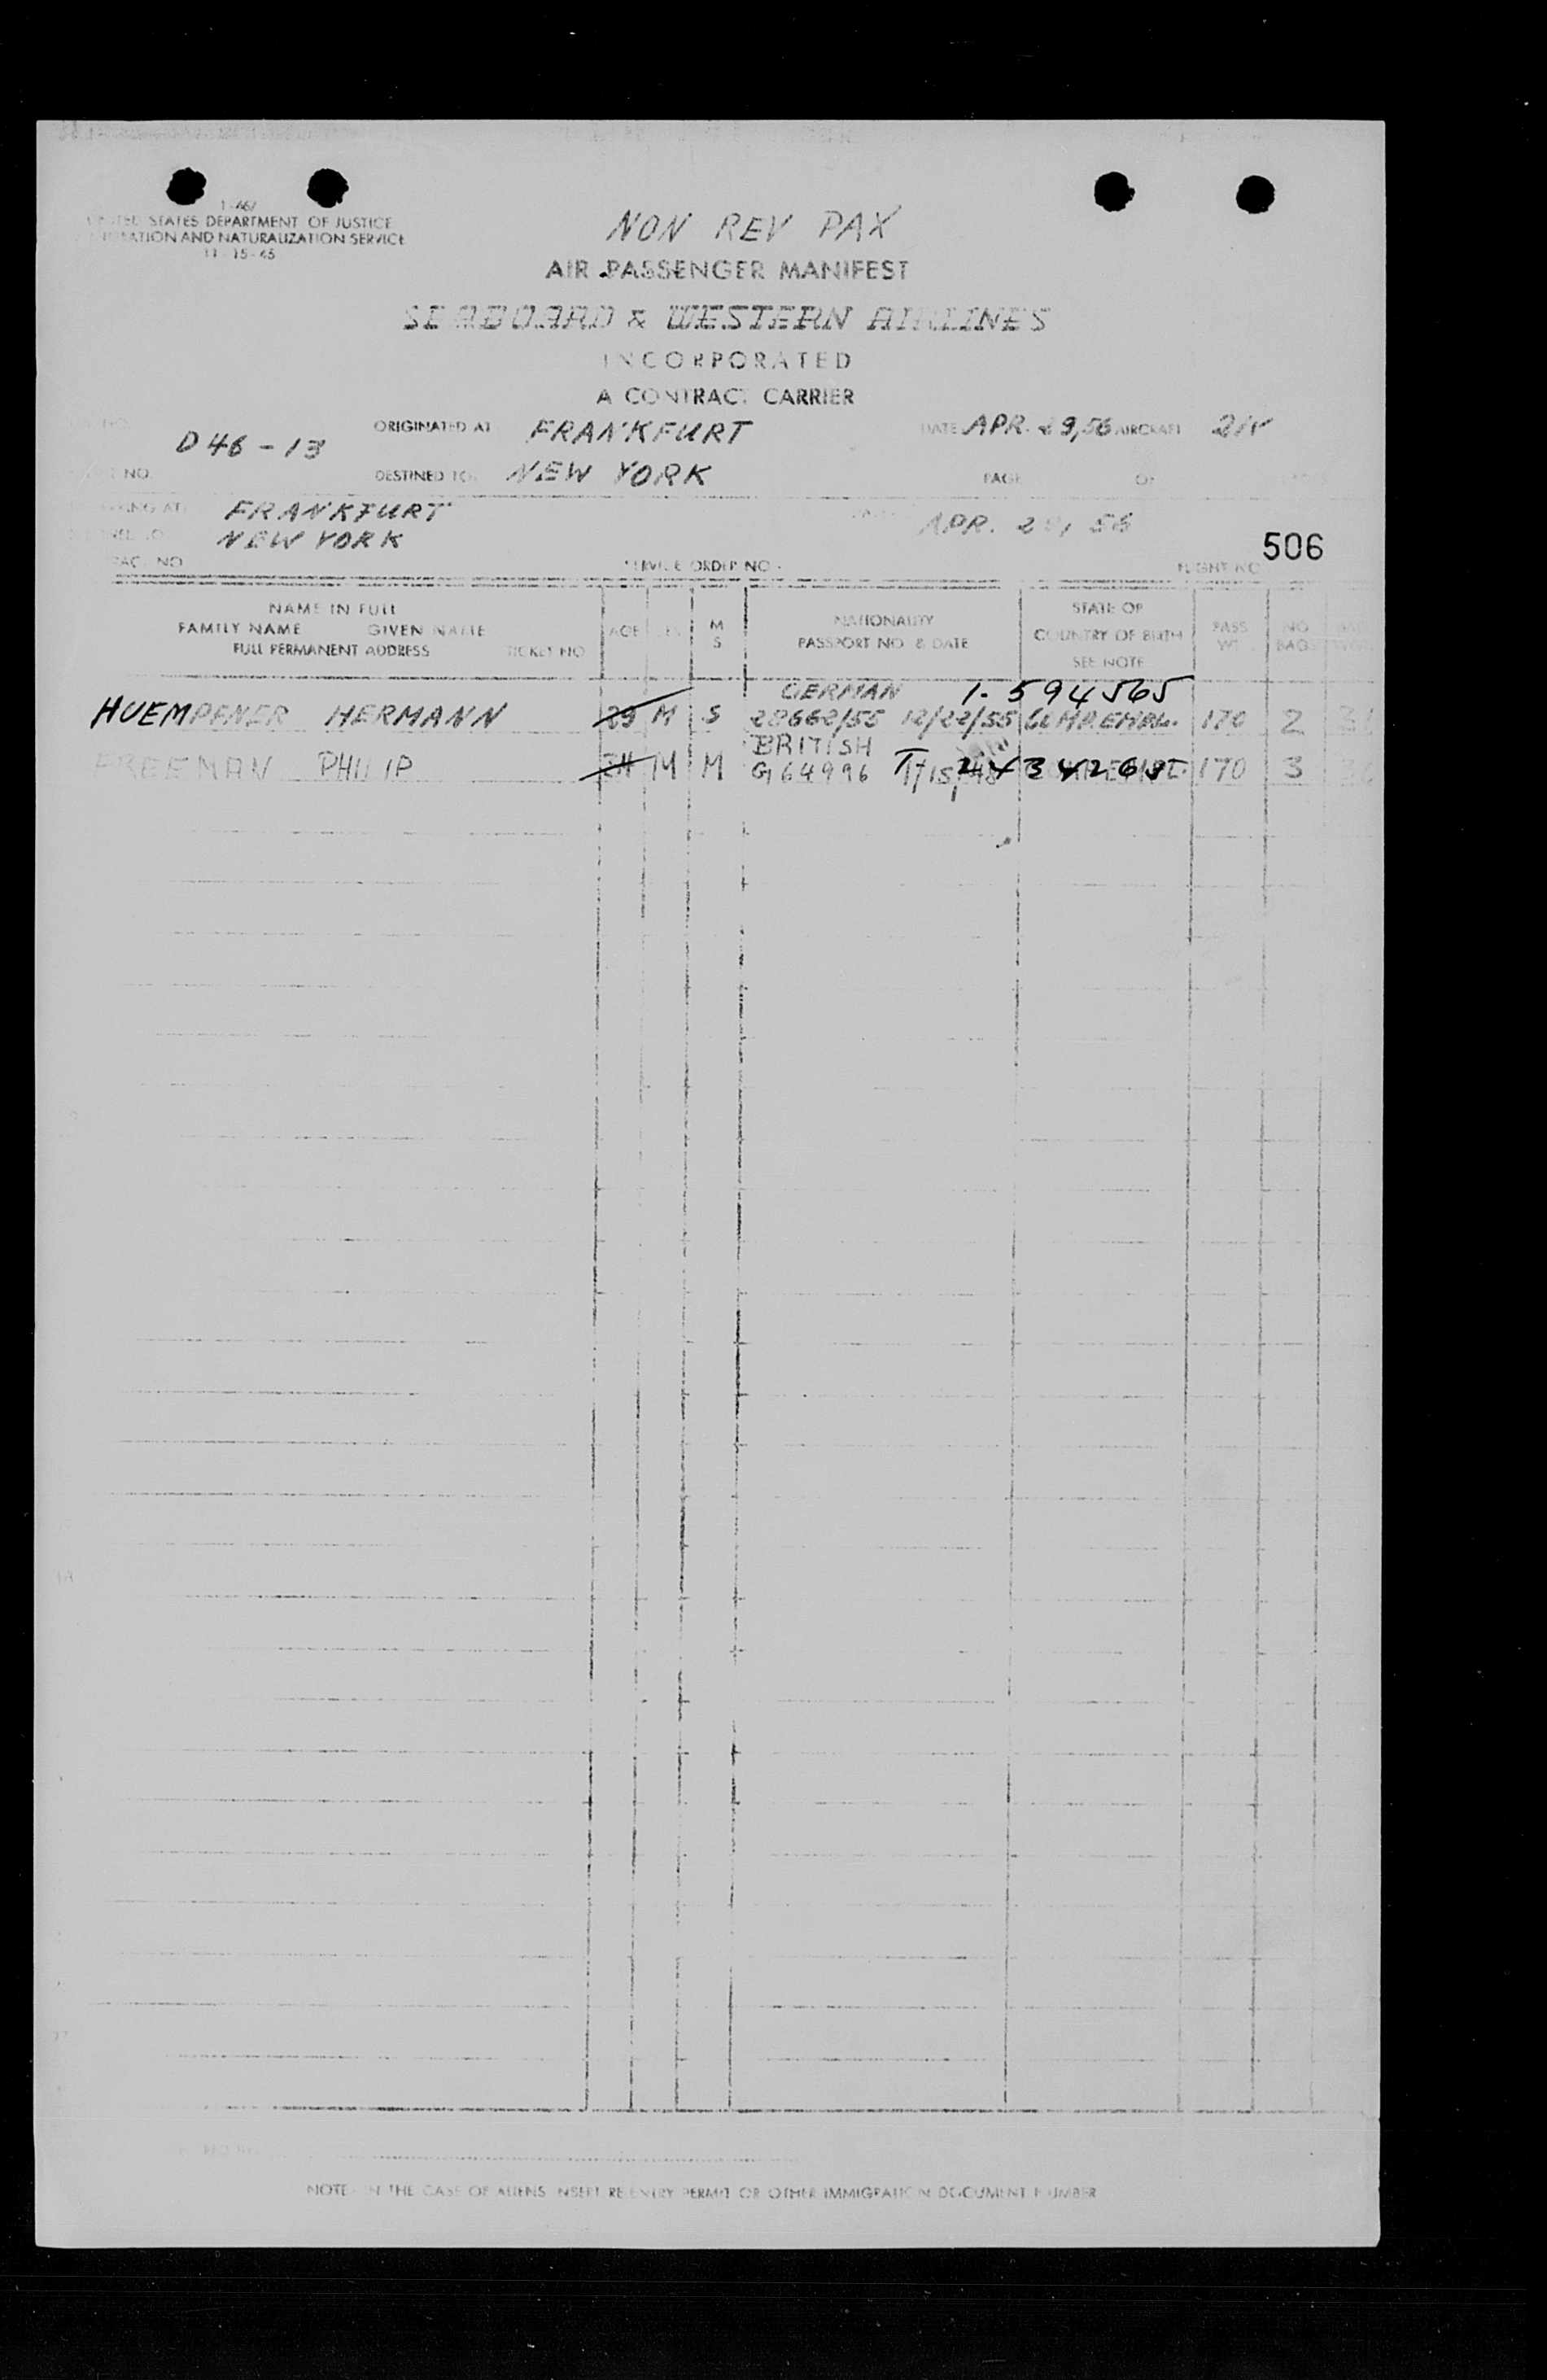 I-467
STATES DEPARTMENT OF JUSTICE
AND NATURALIZATION SERVICE
11-15-45
NON REV PAX
AIR PASSENGER MANIFEST
SEABOARD & WESTERN AIRLINES
INCORPORATED
A CONTRACT CARRIER
D46-13 ORIGINATED AT FRANKFURT DATE APR. 29,56 AIRCRAFT
NO. DESTINED TO NEW YORK PAGE OF
AT FRANKFURT APR. 56
NEW YORK 506
NO SERVICE ORDER NO. FLIGHT NO
NAME IN FULL
FAMILY NAME GIVEN NAME
FULL PERMANENT ADDRESS TICKET NO
AGE
M
S
NATIONALITY
PASSPORT NO. & DATE
STATE OR
COUNTRY OF BIRTH
SEE NOTE
PASS
WT
NO
BAGS
GERMAN 1-594565
HUEMPFNER HERMANN 29 M S 28662/55 12/22/55 170 2
BRITISH
FREEMAN PHILIP M M G64996 170 3
NOTE - IN THE CASE OF ALIENS INSERT REENTRY PERMIT OR OTHER IMMIGRATION DOCUMENT NUMBER